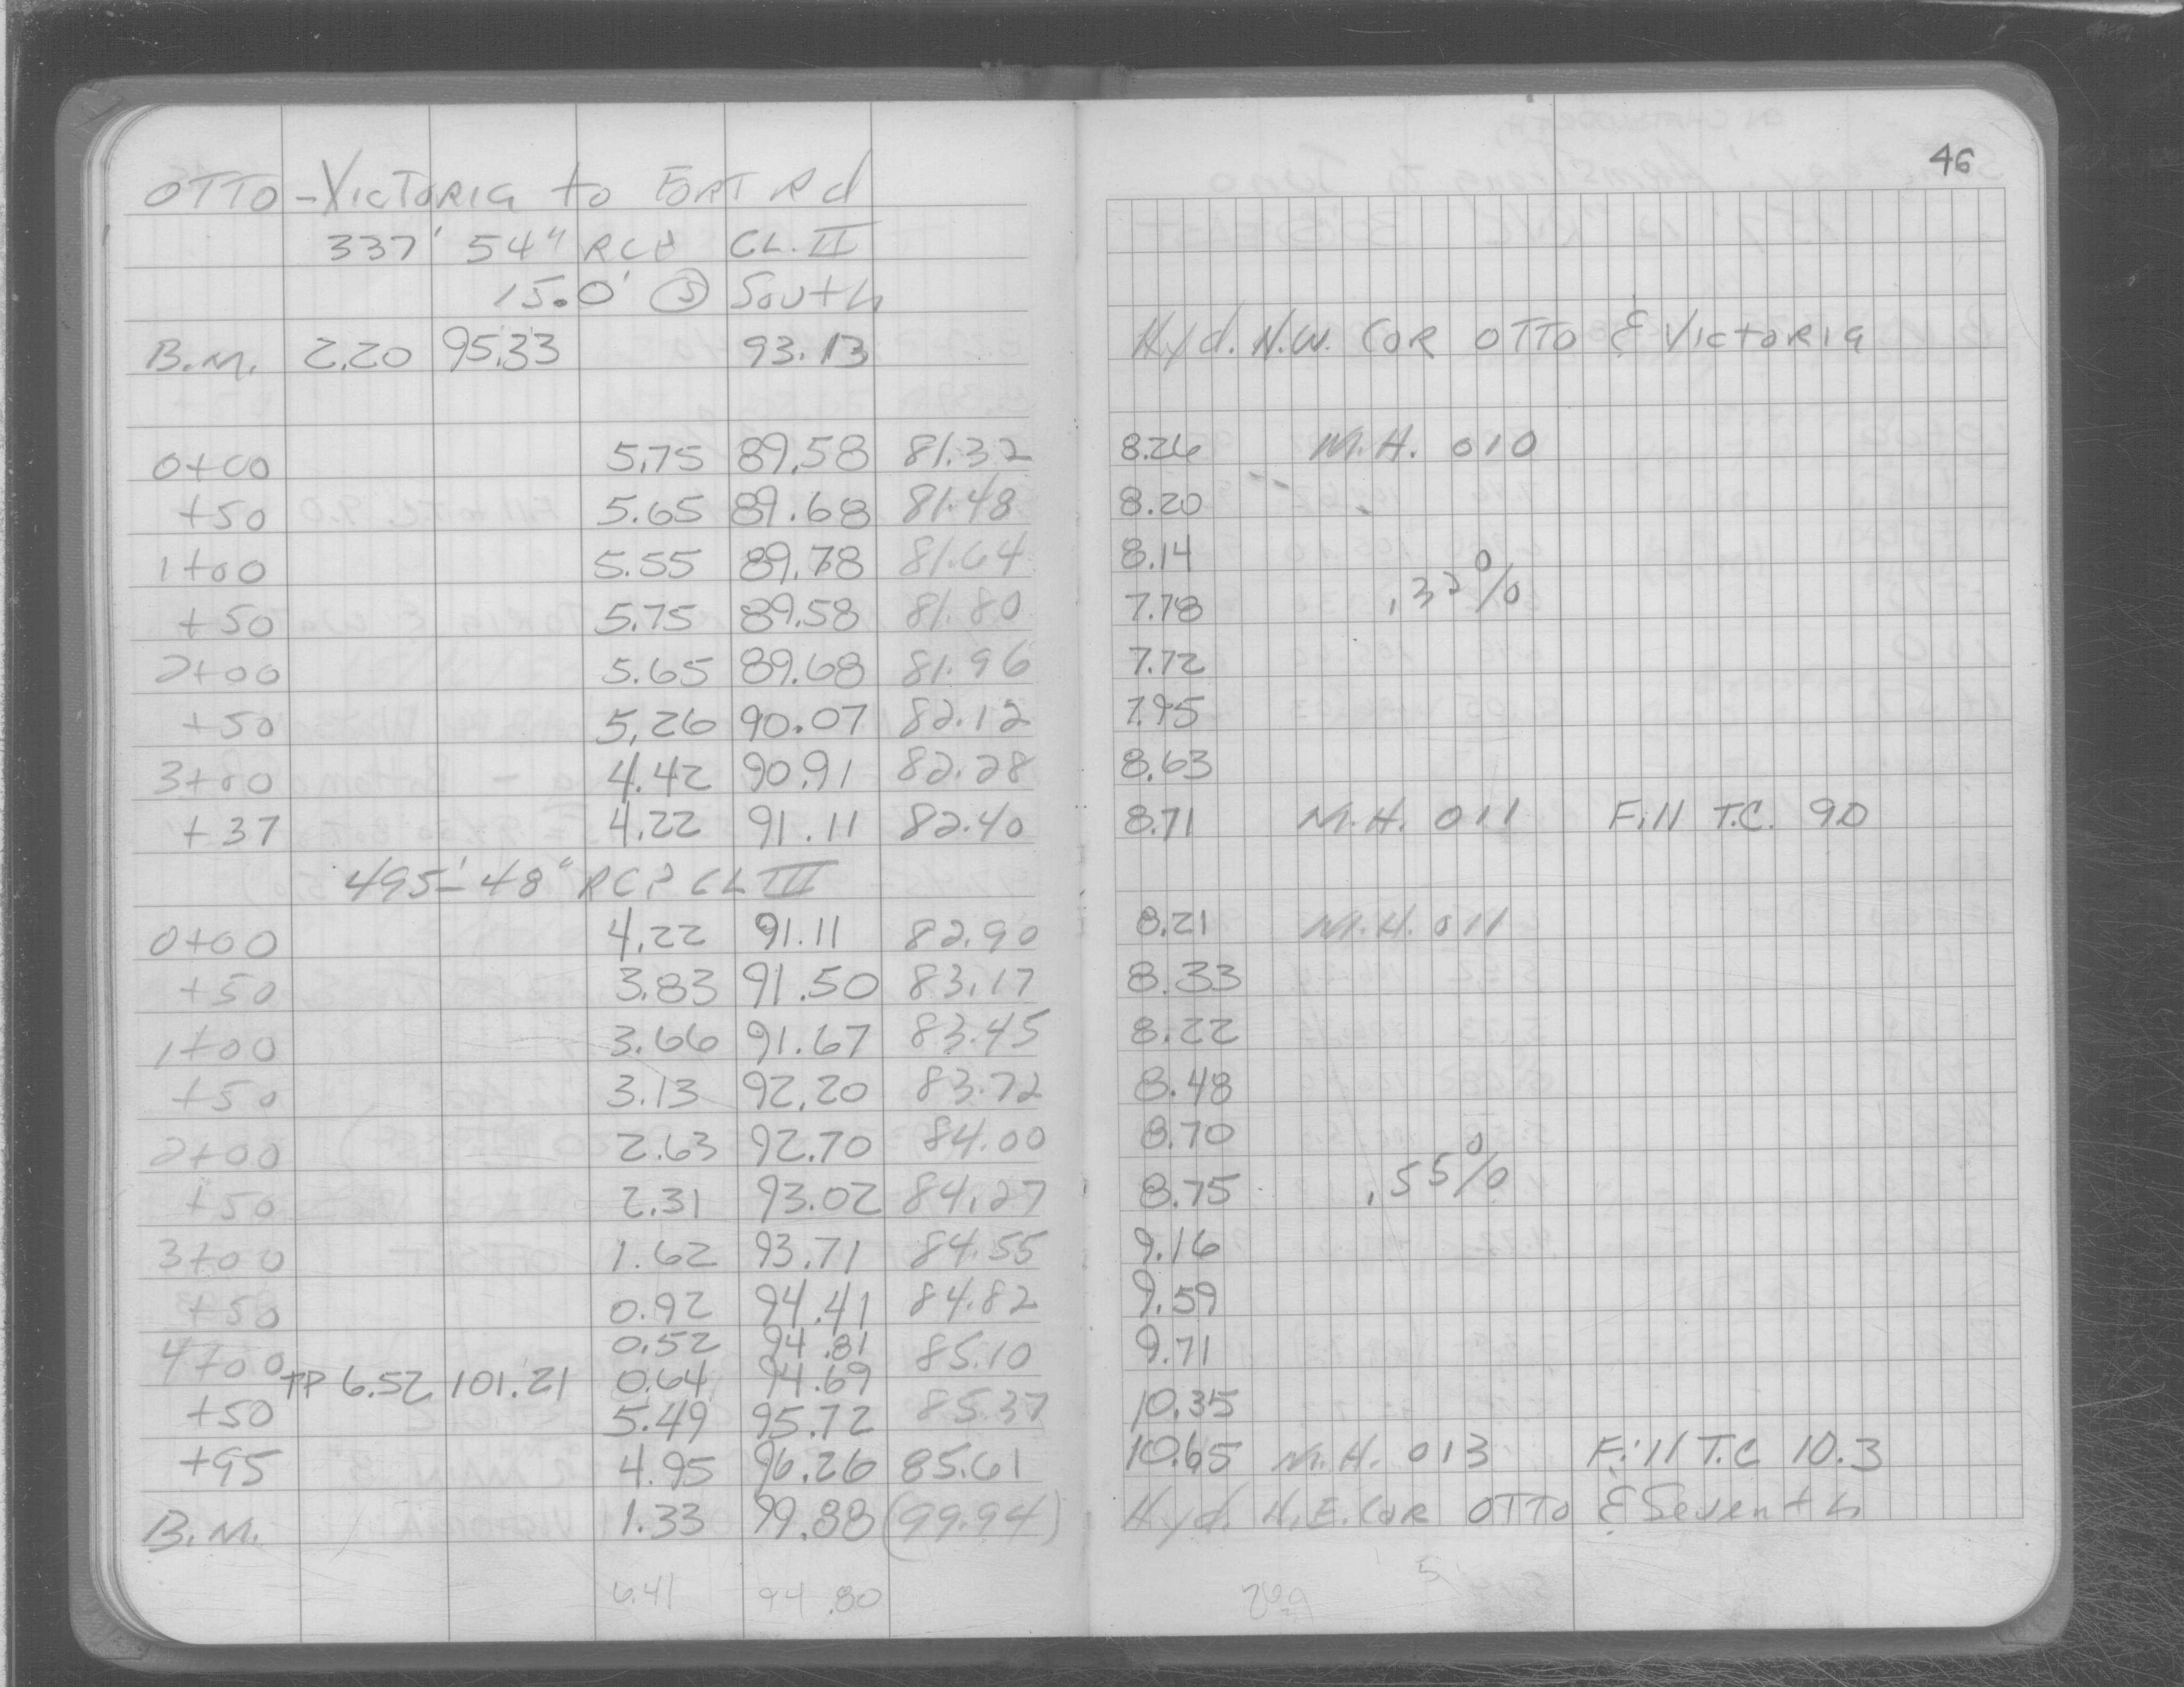 46
OTTO - Victoria to Fort Rd
337' 54" RCP CL. II
15.0' Ⓢ South
B.M. 2.20 95.33 93.13 Hyd. N.W. Cor OTTO & Victoria
0+00 5.75 89.58 81.32 8.26 M.H. 010
+50 5.65 89.68 81.48 8.20
1+00 5.55 89.78 81.64 8.14
+50 5.75 89.58 81.80 7.78 .32%
2+00 5.65 89.68 81.96 7.72
+50 5.26 90.07 82.12 7.95
3+00 4.42 90.91 82.28 8.63
+37 4.22 91.11 82.40 8.71 M.H. 011 Fill T.C. 9.0
495' - 48" RCP CL III
0+00 4.22 91.11 82.90 8.21 M.H. 011
+50 3.83 91.50 83.17 8.33
1+00 3.66 91.67 83.45 8.22
+50 3.13 92.20 83.72 8.48
2+00 2.63 92.70 84.00 8.70
+50 2.31 93.02 84.27 8.75 .55%
3+00 1.62 93.71 84.55 9.16
+50 0.92 94.41 84.82 9.59
4+00 0.52 94.81 85.10 9.71
TP 6.52 101.21 0.64 94.69
+50 5.49 95.72 85.37 10.35
+95 4.95 96.26 85.61 10.65 M.H. 013 Fill T.C 10.3
B.M. 1.33 99.88 (99.94) Hyd. N.E. Cor OTTO & Seventh
6.41 94.80